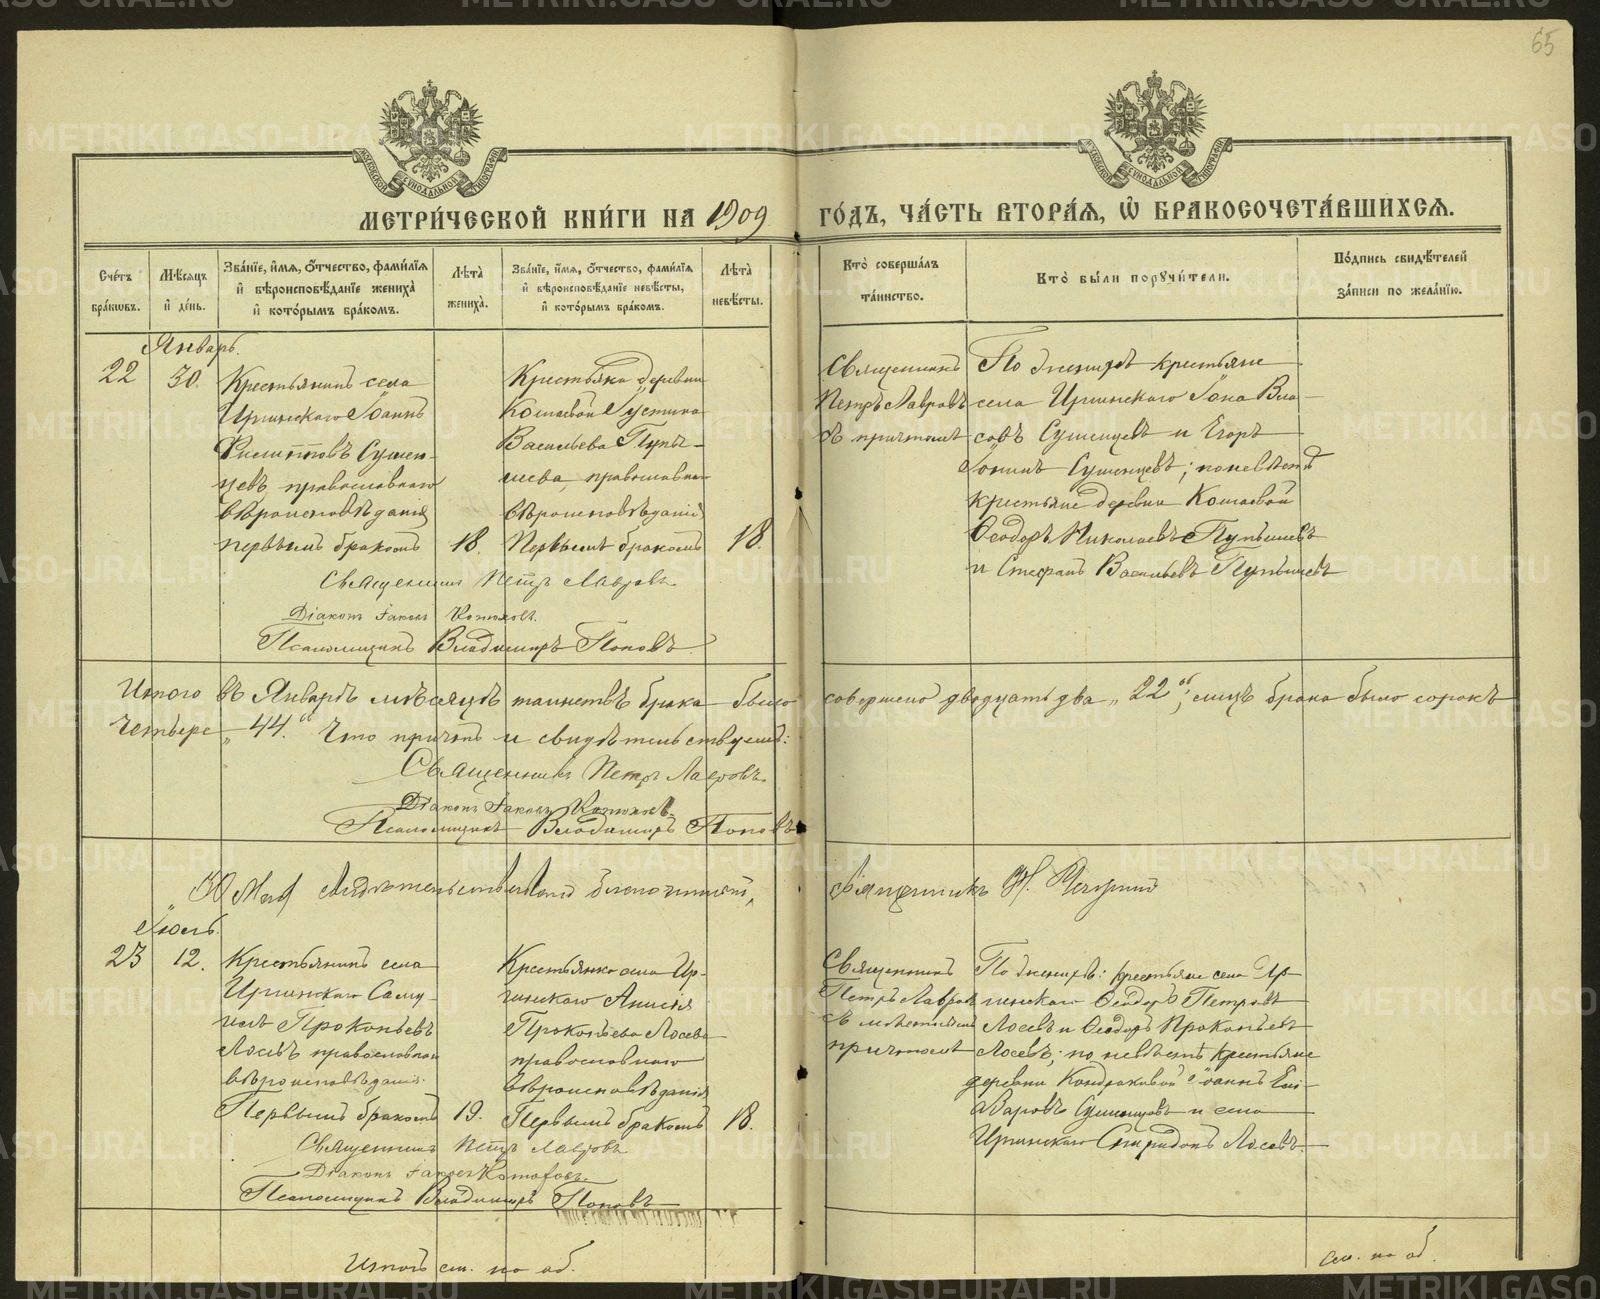 65
МЕТРИ́ЧЕСКОЙ КНИ́ГИ НА 1909 ГО́ДЪ, ЧА́СТЬ ВТОРА́Я, Ѽ БРАКОСОЧЕТА́ВШИХСЯ.
Сче́тъ бра́кѡвъ.
Мѣ́сяцъ и҆ де́нь.
Зва́нїе, и҆́мя, ѻ҆́тчество, фами́лїя и҆ вѣроисповѣ́данїе жениха̀ и҆ кото́рымъ бра́комъ.
Лѣ́та жениха̀.
Зва́нїе, и҆́мя, ѻ҆́тчество, фами́лїя и҆ вѣроисповѣ́данїе невѣ́сты, и҆ кото́рымъ бра́комъ.
Лѣ́та невѣ́сты.
Кто̀ соверша́лъ та́инство.
Кто̀ бы́ли порꙋчи́тели.
По́дпись свидѣ́телей за́писи по жела́нїю.
Январь.
22
30.
Крестьянинъ села
Иргинскаго Іоаннъ
Филипповъ Сушен-
цевъ, православнаго
вѣроисповѣданія
первымъ бракомъ
18.
Крестьянка деревни
Кошаевой Іустина
Васильева Пупы-
шева, православна-
вѣроисповѣданія
Первымъ бракомъ
18.
Священникъ
Петръ Лавровъ
съ причтомъ
По женихѣ крестьяне
села Иргинскаго Іона Вла-
совъ Сушенцевъ и Егоръ
Іонинъ Сушенцевъ; по невѣстѣ
крестьяне деревни Кошаевой
Ѳеодоръ Николаевъ Пупышевъ
и Стефанъ Васильевъ Пупышевъ
Священникъ Петръ Лавровъ
Діаконъ Іаковъ
Псаломщикъ Владимиръ Поповъ.
Итого въ Январѣ мѣсяцѣ таинствъ брака было совершено двадцать два „22“, лицъ брака было сорокъ
четыре „44.“ Что причтъ и свидѣтельствуетъ:
Священникъ Петръ Лавровъ.
Діаконъ Іаковъ
Псаломщикъ Владимиръ Поповъ
30 Мая Священникъ
Іюль.
23
12.
Крестьянинъ села
Иргинскаго Саму-
илъ Прокопьевъ
Лосевъ православнаго
вѣроисповѣданія.
Первымъ бракомъ
19.
Крестьянка села Ир-
гинскаго Анисія
Прокопьева Лосева
православнаго
вѣроисповѣданія
Первымъ бракомъ
18.
Священникъ
Петръ Лавровъ
съ мѣстнымъ
причтомъ
По женихѣ: крестьяне села Ир-
гинскаго Ѳеодоръ Петровъ
Лосевъ и Ѳеодоръ Прокопьевъ
Лосевъ; по невѣстѣ крестьяне
деревни Кондраковой Іоаннъ
Сушенцевъ и села
Иргинскаго Спиридонъ Лосевъ.
Священникъ Петръ Лавровъ
Діаконъ Іаковъ
Псаломщикъ Владимиръ Поповъ
Итогъ см. на об.
см. на об.
METRIKI.GASO-URAL.RU